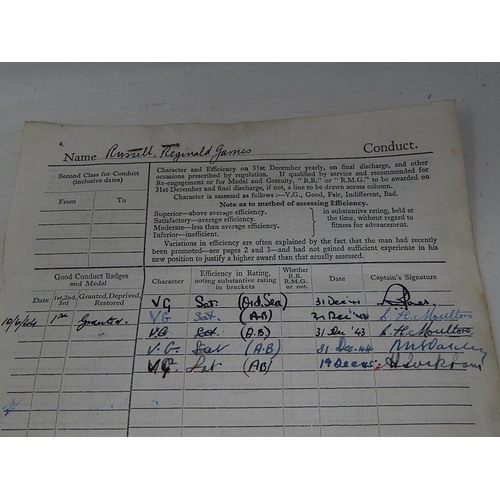 4.
Name Russell, Reginald James Conduct.
Second Class for Conduct
(inclusive dates)
From To
Character and Efficiency on 31st December yearly, on final discharge, and other
occasions prescribed by regulation. If qualified by service and recommended for
Re-engagement or for Medal and Gratuity, "R.R." or "R.M.G." to be awarded on
31st December and final discharge, if not, a line to be drawn across column.
Character is assessed as follows:—V.G., Good, Fair, Indifferent, Bad.
Note as to method of assessing Efficiency.
Superior—above average efficiency.
Satisfactory—average efficiency.
Moderate—less than average efficiency.
Inferior—inefficient.
in substantive rating, held at
the time, without regard to
fitness for advancement.
Variations in efficiency are often explained by the fact that the man had recently
been promoted—see pages 2 and 3—and had not gained sufficient experience in his
new position to justify a higher award than that actually assessed.
Good Conduct Badges
and Medal
Date 1st, 2nd, 3rd Granted, Deprived, Restored
Character
Efficiency in Rating,
noting substantive rating
in brackets
Whether
R.R.
R.M.G.
or not.
Date
Captain's Signature
VG Sat. (Ord. Sea) 31 Dec 41
10/6/44 1st Granted. VG Sat. (AB) 31 Dec '42 L. H. Moulton
VG Sat. (A.B) 31 Dec '43 L. H. Moulton
V.G. Sat (A.B) 31 Dec. 44
VG Sat (AB) 19 Dec 45